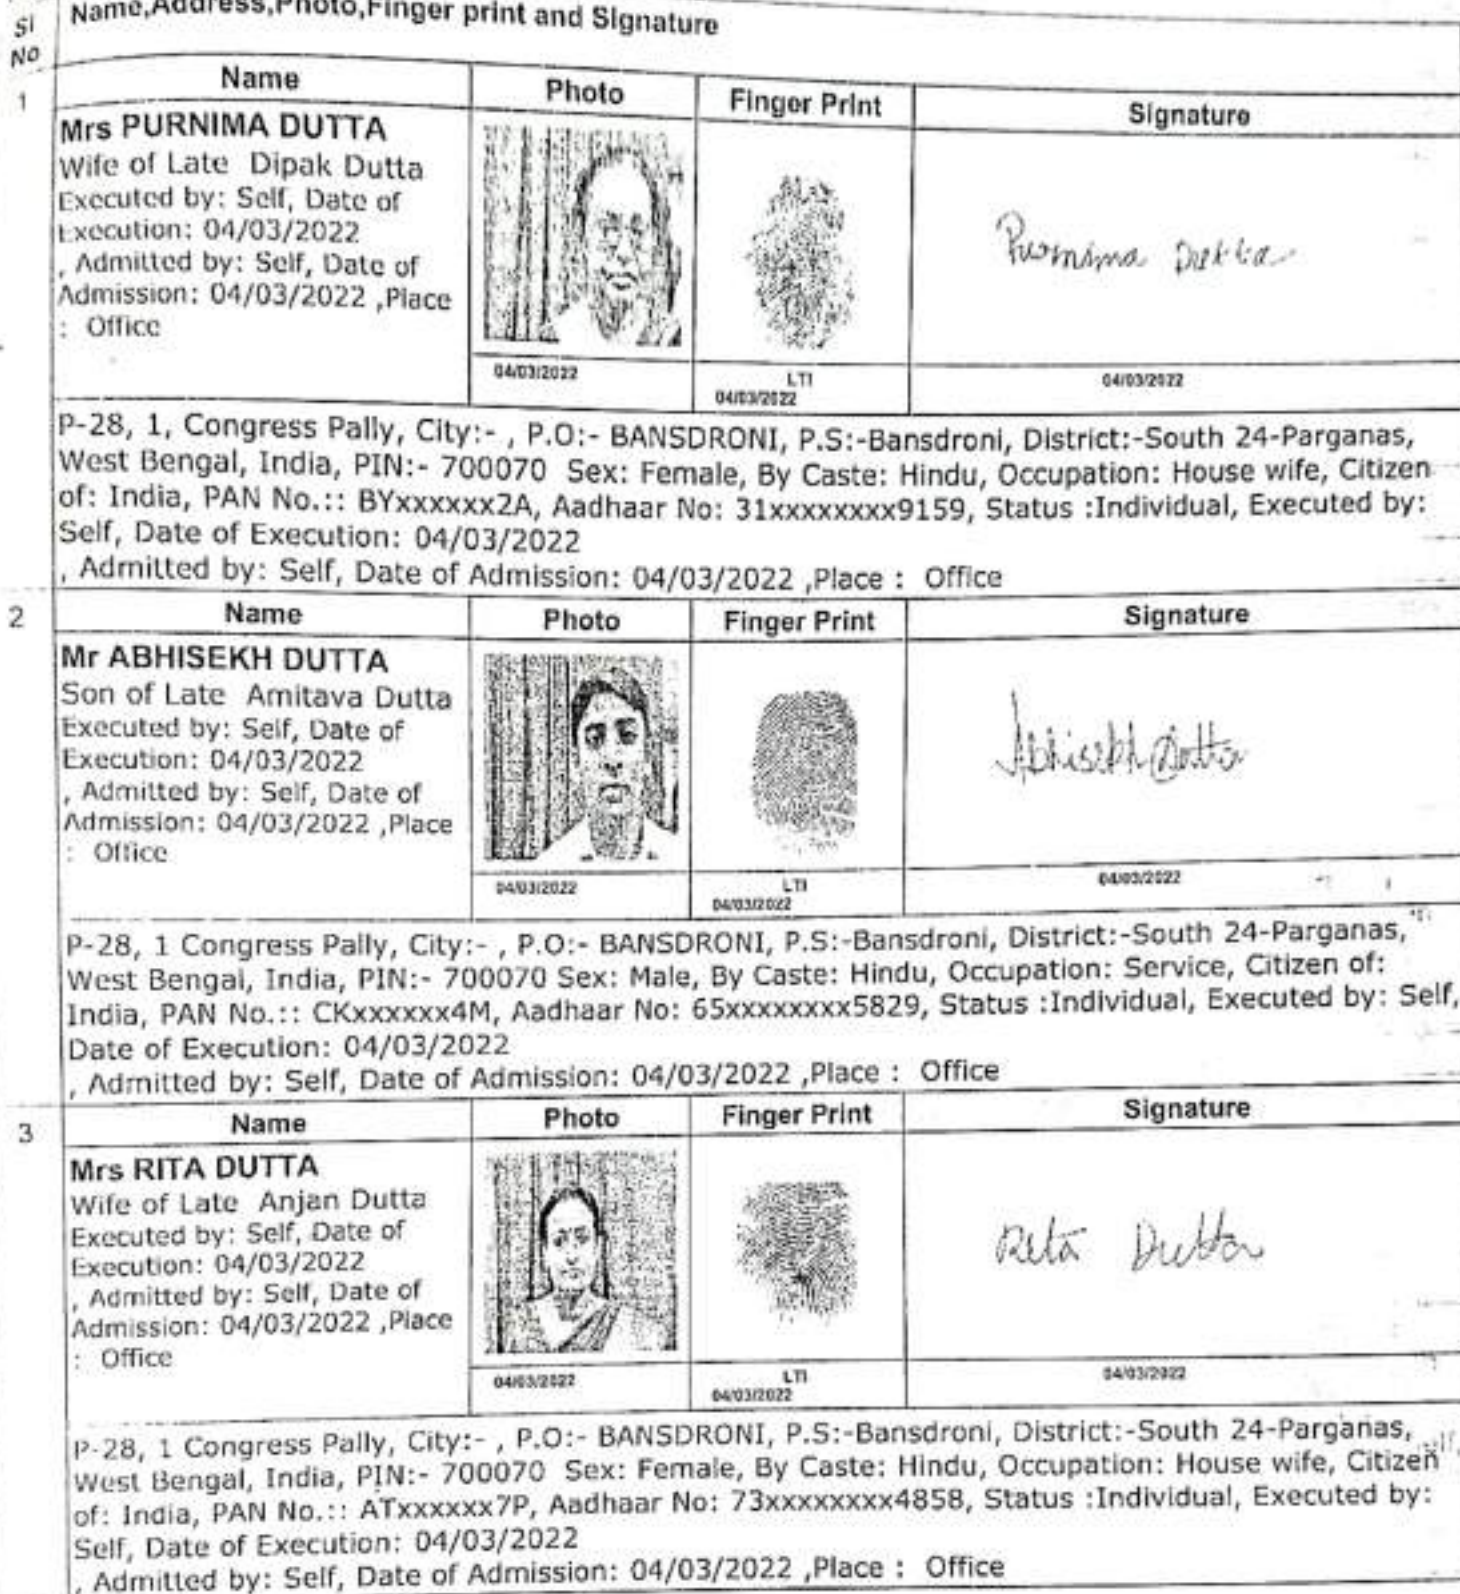 Sl
No
Name,Address,Photo,Finger print and Signature
1
Name
Photo
Finger Print
Signature
Mrs PURNIMA DUTTA
Wife of Late Dipak Dutta
Executed by: Self, Date of
Execution: 04/03/2022
, Admitted by: Self, Date of
Admission: 04/03/2022 ,Place
: Office
Purnima Dutta
04/03/2022
LTI
04/03/2022
04/03/2022
P-28, 1, Congress Pally, City:- , P.O:- BANSDRONI, P.S:-Bansdroni, District:-South 24-Parganas,
West Bengal, India, PIN:- 700070 Sex: Female, By Caste: Hindu, Occupation: House wife, Citizen
of: India, PAN No.:: BYxxxxxx2A, Aadhaar No: 31xxxxxxxx9159, Status :Individual, Executed by:
Self, Date of Execution: 04/03/2022
, Admitted by: Self, Date of Admission: 04/03/2022 ,Place : Office
2
Name
Photo
Finger Print
Signature
Mr ABHISEKH DUTTA
Son of Late Amitava Dutta
Executed by: Self, Date of
Execution: 04/03/2022
, Admitted by: Self, Date of
Admission: 04/03/2022 ,Place
: Office
Abhisekh Dutta
04/03/2022
LTI
04/03/2022
04/03/2022
P-28, 1 Congress Pally, City:- , P.O:- BANSDRONI, P.S:-Bansdroni, District:-South 24-Parganas,
West Bengal, India, PIN:- 700070 Sex: Male, By Caste: Hindu, Occupation: Service, Citizen of:
India, PAN No.:: CKxxxxxx4M, Aadhaar No: 65xxxxxxxx5829, Status :Individual, Executed by: Self,
Date of Execution: 04/03/2022
, Admitted by: Self, Date of Admission: 04/03/2022 ,Place : Office
3
Name
Photo
Finger Print
Signature
Mrs RITA DUTTA
Wife of Late Anjan Dutta
Executed by: Self, Date of
Execution: 04/03/2022
, Admitted by: Self, Date of
Admission: 04/03/2022 ,Place
: Office
Rita Dutta
04/03/2022
LTI
04/03/2022
04/03/2022
P-28, 1 Congress Pally, City:- , P.O:- BANSDRONI, P.S:-Bansdroni, District:-South 24-Parganas,
West Bengal, India, PIN:- 700070 Sex: Female, By Caste: Hindu, Occupation: House wife, Citizen
of: India, PAN No.:: ATxxxxxx7P, Aadhaar No: 73xxxxxxxx4858, Status :Individual, Executed by:
Self, Date of Execution: 04/03/2022
, Admitted by: Self, Date of Admission: 04/03/2022 ,Place : Office